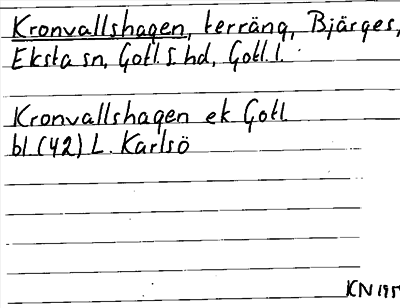 Kronvallshagen, terräng, Bjärges,
Eksta sn, Gotl. S. hd, Gotl. l.
Kronvallshagen ek Gotl
bl. (42) L. Karlsö
KN 195